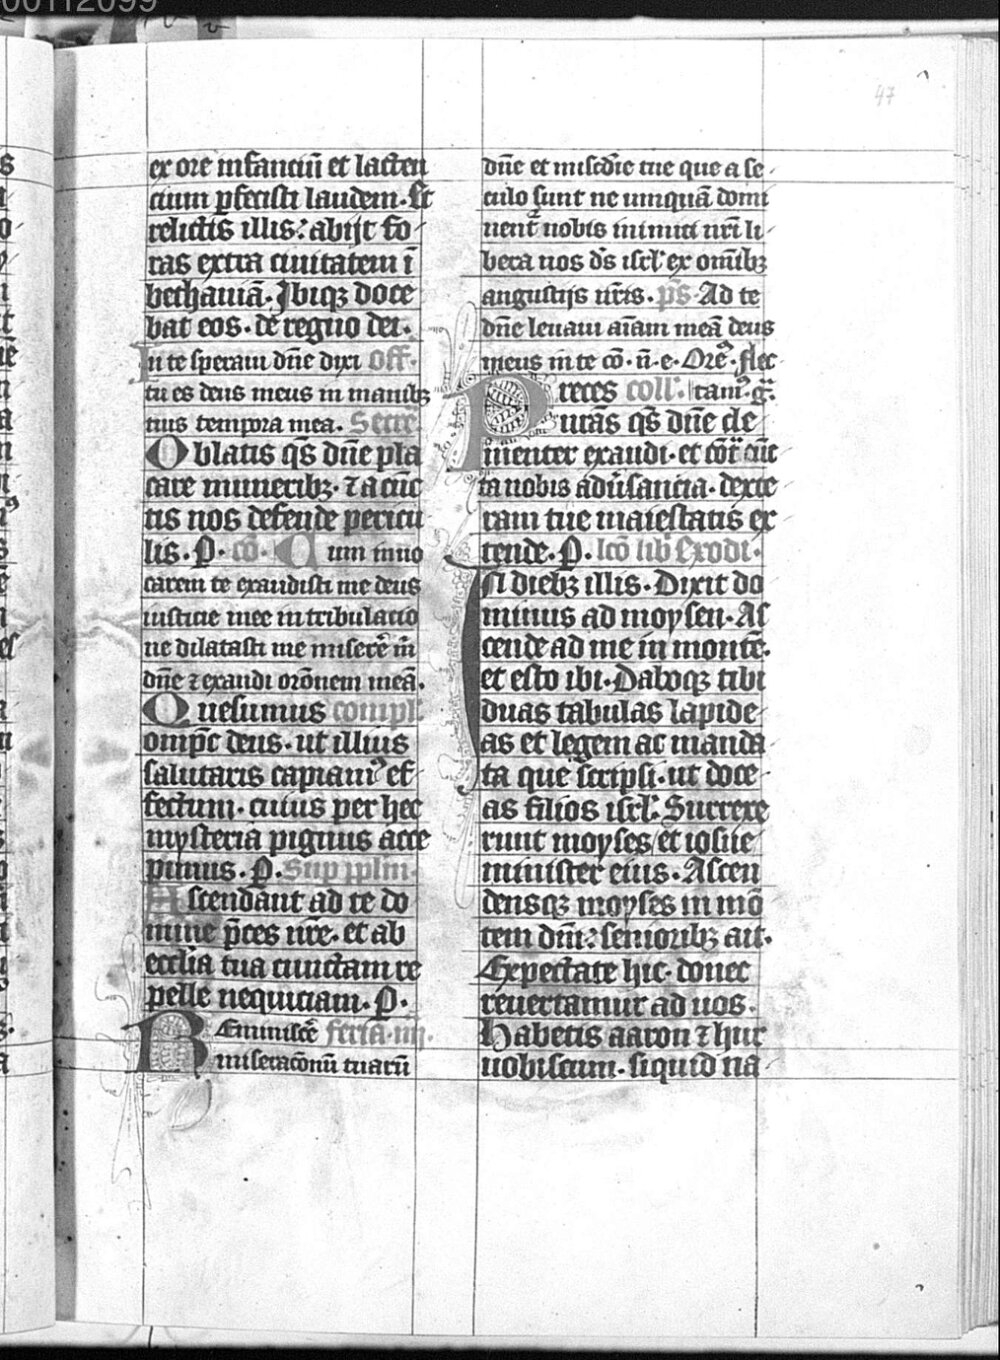 00112099
47
ex ore infanciũ et lacten
cium pfecisti laudem. Et
relictis illis: abijt fo
ras extra ciuitatem ĩ
bethaniã. Ibiqꝫ doce
bat eos. de regno dei.
In te speraui dñe dixi off.
tu es deus meus in manibꝫ
tuis tempora mea. Secre
Oblatis qs̃ dñe pla
care muneribꝫ. ⁊ a cũc
tis nos defende pericu
lis. P. cõ. Cum inuo
carem te exaudisti me deus
iusticie mee in tribulacio
ne dilatasti me miserẽ m̃
dñe ⁊ exaudi orõnem meã.
Quesumus compl.
ompc̃ deus. ut illius
salutaris capiamꝰ ef
fectum. cuius per hec
mysteria pignus acce
pimus. P. Sup pplm.
Ascendant ad te do
mine p̃ces nr̃e. et ab
ecclia tua cunctam re
pelle nequiciam. P.
Reminiscẽ feria. iiij.
miseracõnũ tuarũ
dñe et misc̃die tue que a se
culo sunt ne umquã domi
nent̃ nobis inimici nr̃i li
bera nos ds̃ isrl̃ ex omĩbꝫ
angustijs nr̃is. ps̃. Ad te
dñe leuaui aĩam meã deus
meus in te cõ. ñ. e. Orẽꝰ. flec
Preces coll. tamꝰ. g̃.
nr̃as qs̃ dñe cle
menter exaudi. et cõt̃ cũc
ta nobis adũsancia. dexte
ram tue maiestatis ex
tende. P. lc̃o lib Exodi.
In diebꝫ illis. Dixit do
minus ad moysen. As
cende ad me in montẽ.
et esto ibi. Daboqꝫ tibi
duas tabulas lapide
as et legem ac manda
ta que scripsi. ut doce
as filios isrl̃. Surrexe
runt moyses et iosue
minister eius. Ascen
densqꝫ moyses in mõ
tem dñi: senioribꝫ ait.
Expectate hic. donec
reuertamur ad uos.
Habetis aaron ⁊ hur
uobiscum. siquid na